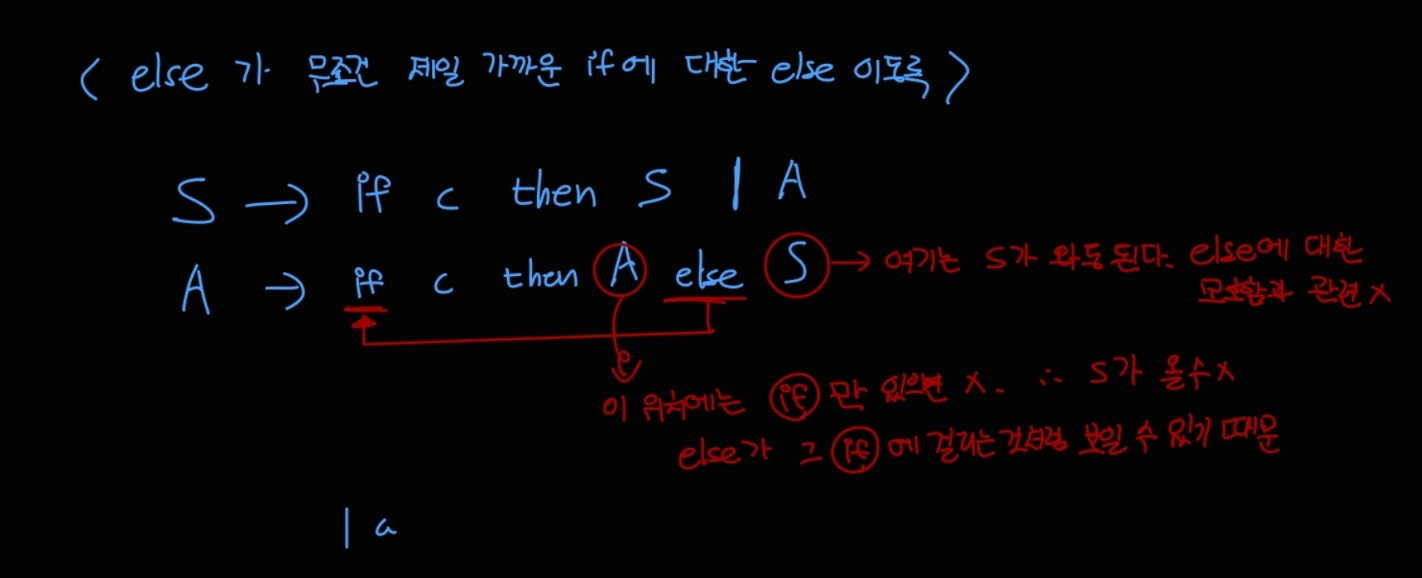 < else 가 무조건 제일 가까운 if에 대한 else 이도록 >
S → if c then S | A
A → if c then A else S → 여기는 S가 와도 된다. else에 대한
모호함과 관련 X
이 위치에는 if 만 있으면 X. ∴ S가 올수 X
else가 그 if 에 걸리는 것처럼 보일 수 있기 때문
| a